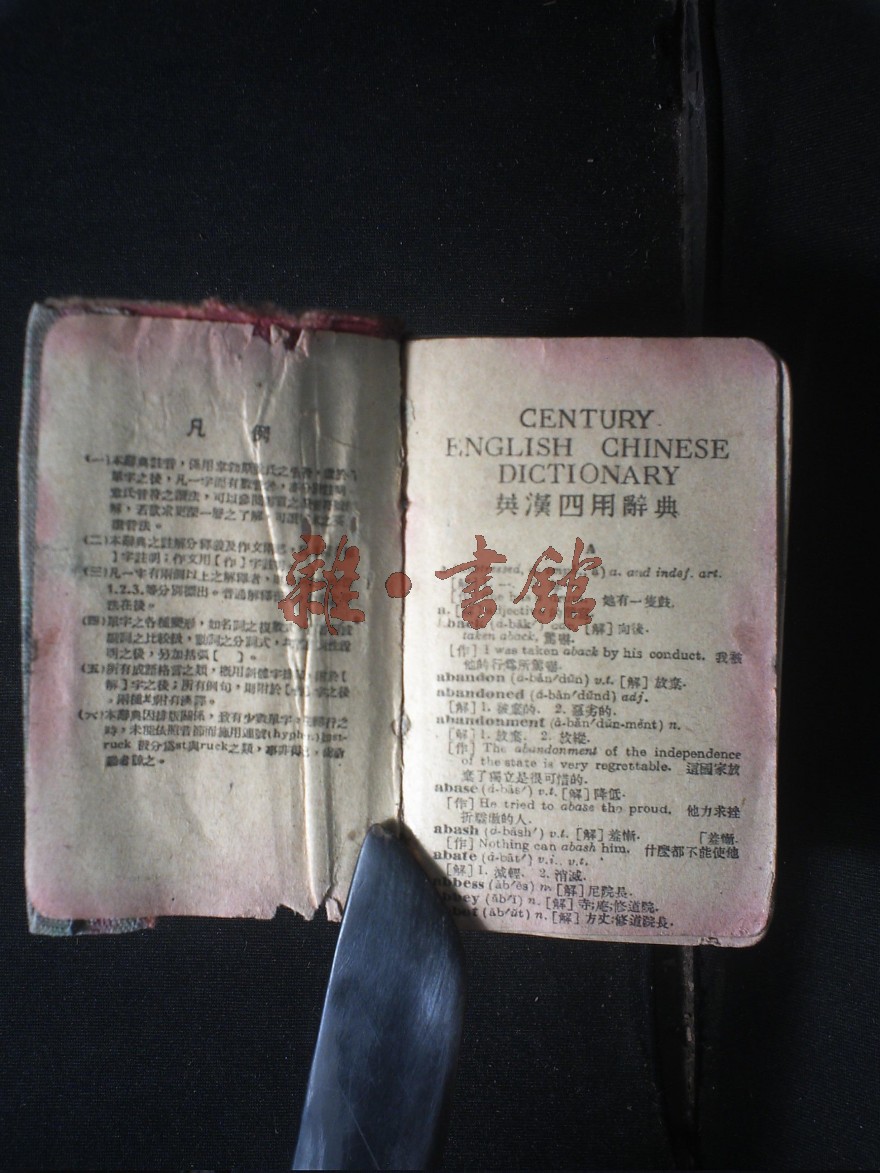 凡 例
(一)本辭典註音，係用韋勃斯
單字之後，凡一字而有數
韋氏音符之讀法，可以參閱
解，若欲求更深一層之了解
讀音法。
(二)本辭典之註解分釋義及作文兩
】字註明；作文用【作】字註
(三)凡一字有兩個以上之解釋者，
1.2.3.等分別標出。普通解釋
在後。
(四)單字之各種變形，如名詞之複數
副詞之比較級，動詞之分詞式，
明之後，另加括弧【 】。
(五)所有成語格言之類，概用斜體字排
解】字之後；所有例句，則附於【作】字之後
，兩種均附有漢譯。
(六)本辭典因排版關係，致有少數單字，
時，未能依照音節而施用連號(hyphen)如st-
ruck 被分爲st與ruck之類，事非得已，
讀者諒之。
CENTURY
ENGLISH CHINESE
DICTIONARY
英漢四用辭典
A
a. and indef. art.
她有一隻鼓.
[解] 向後.
taken aback, 驚嚇.
[作] I was taken aback by his conduct. 我被
他的行爲所驚嚇.
abandon (á-băn′dŭn) v.t. [解] 放棄.
abandoned (á-băn′dŭnd) adj.
[解] 1. 被棄的. 2. 惡劣的.
abandonment (á-băn′dŭn-mĕnt) n.
[解] 1. 放棄. 2. 放縱.
[作] The abandonment of the independence
of the state is very regrettable. 這國家放
棄了獨立是很可惜的.
abase (á-bās′) v.t. [解] 降低.
[作] He tried to abase the proud. 他力求挫
折驕傲的人.
abash (á-băsh′) v.t. [解] 羞慚. 「羞慚.
[作] Nothing can abash him. 什麼都不能使他
abate (á-bāt′) v.i., v.t.
[解] 1. 減輕. 2. 消滅.
abbess (ăb′ĕs) n. [解] 尼院長.
abbey (ăb′ĭ) n. [解] 寺;庵;修道院.
abbot (ăb′ŭt) n. [解] 方丈;修道院長.
雜·書館